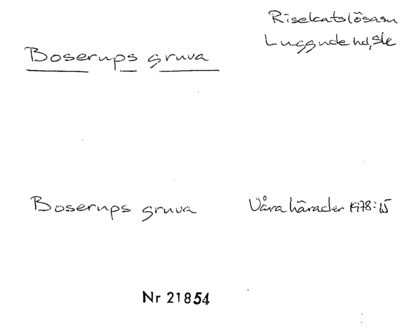 Risekatslösasn
Luggude hd, Ske
Boserups gruva
Boserups gruva Våra härader 1978:15
Nr 21854